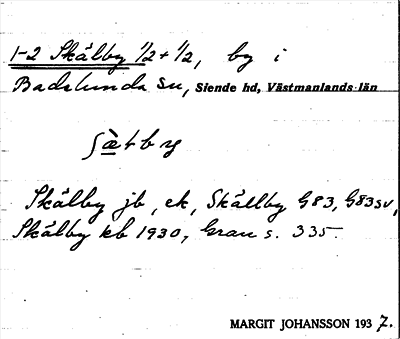 1-2 Skälby 1/2 + 1/2, by i
Badelunda sn, Siende hd, Västmanlands län
Skälby jb, ek, Skällby G83, G83sv,
Skälby kb 1930, Grau s. 335.
MARGIT JOHANSSON 1937.